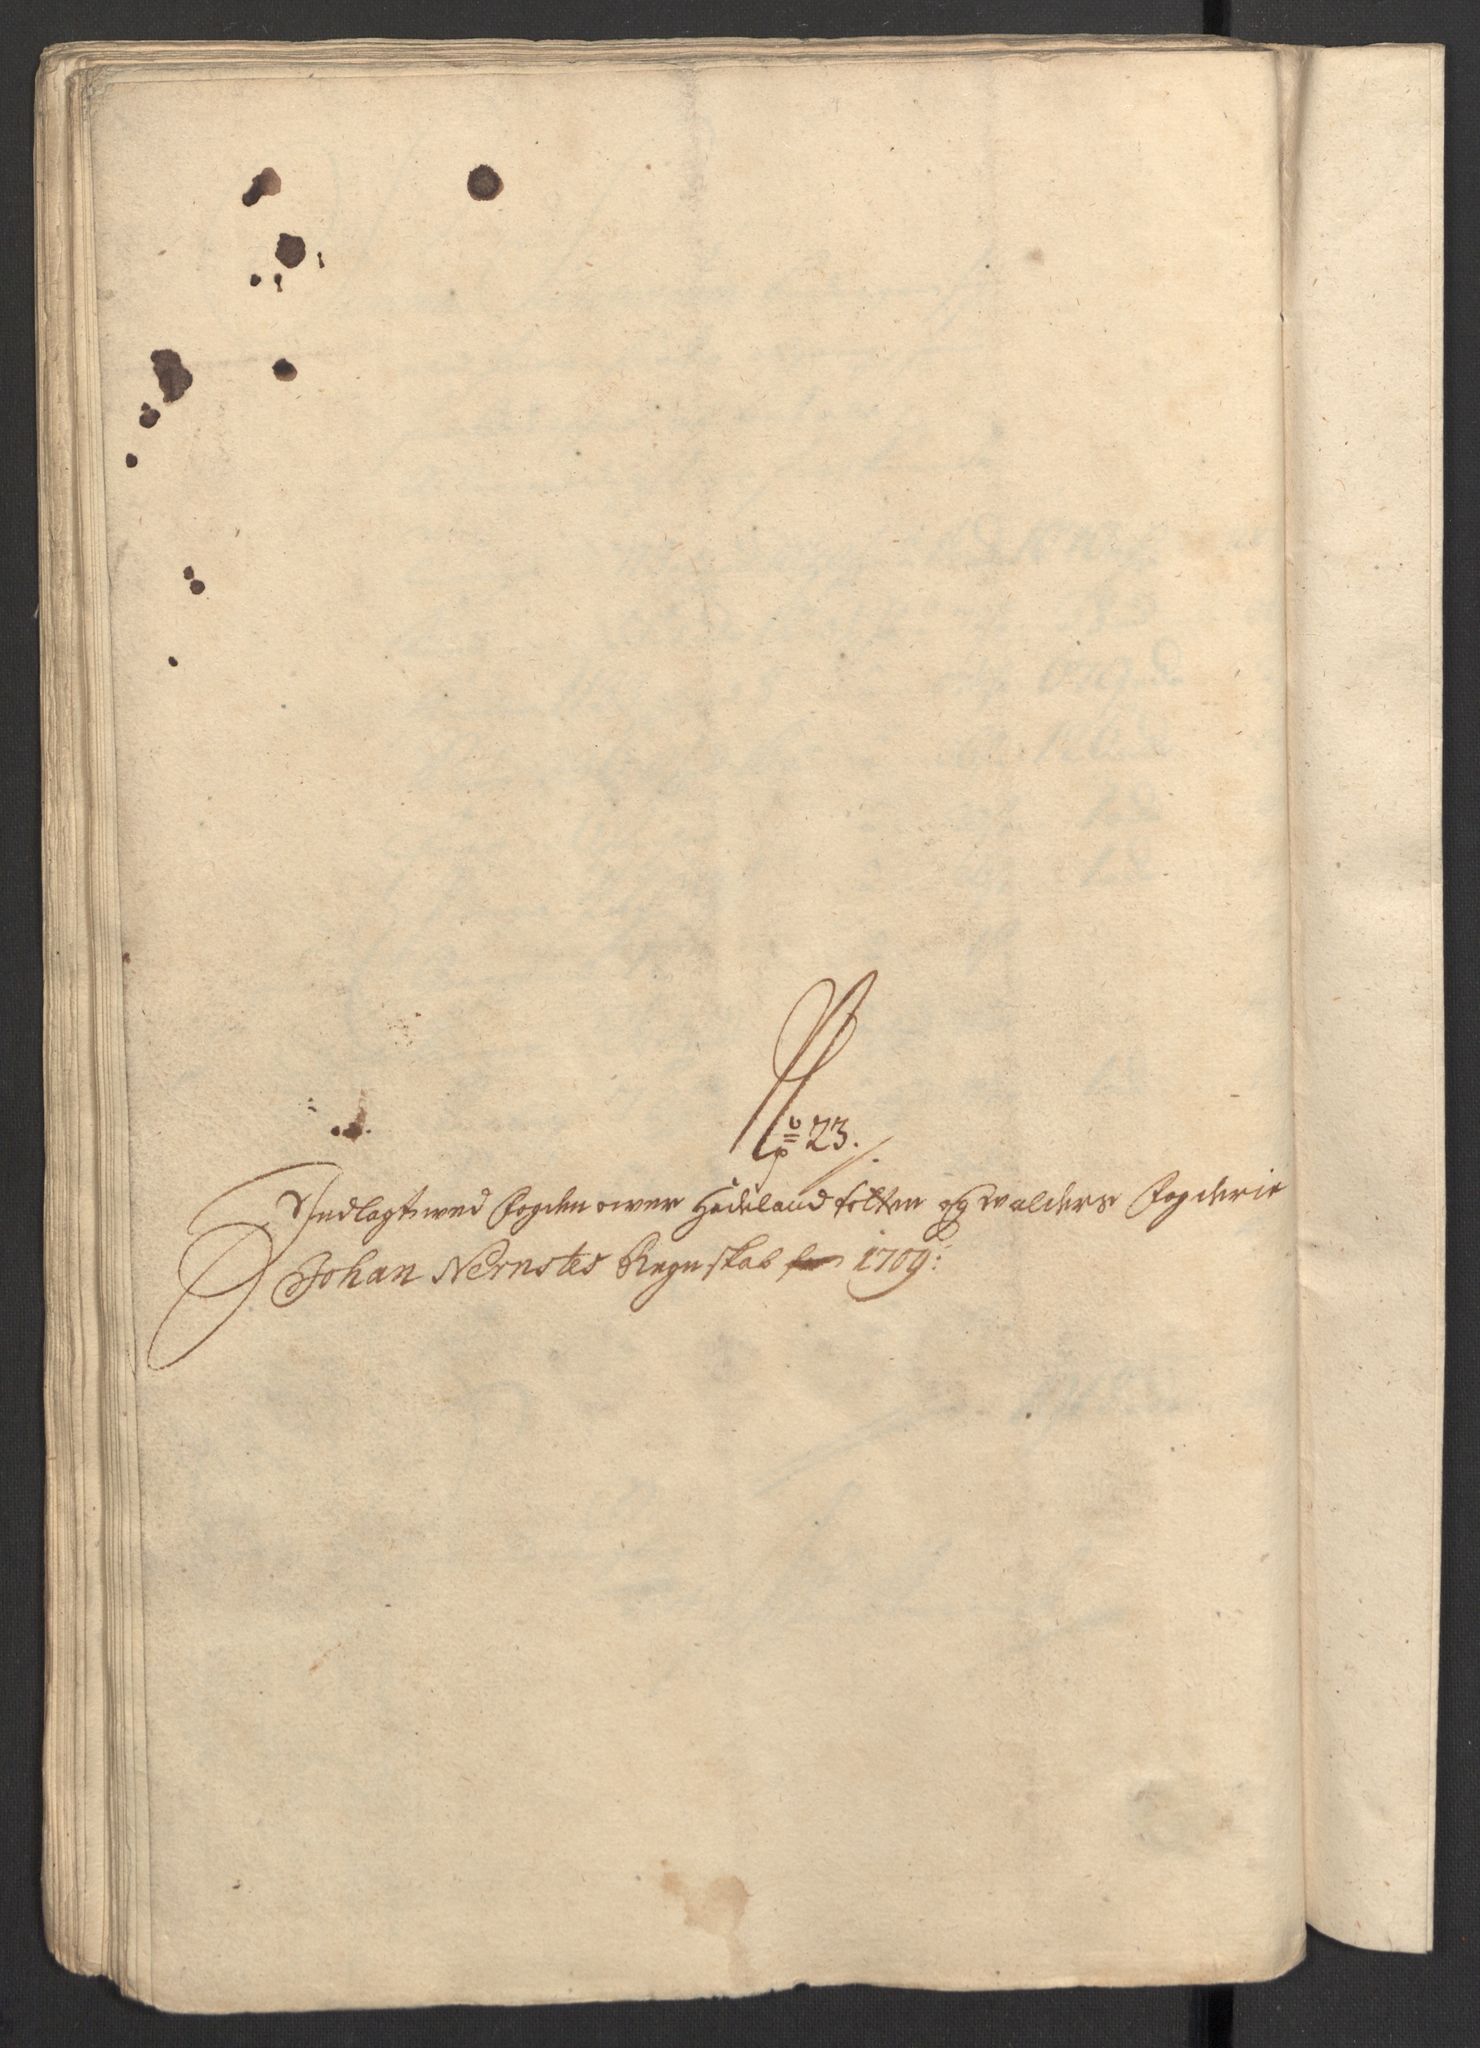 No 23.
Indlagt wed Fogden ower Hadeland Totten og Walders Fogderie
Johan Nernstes Regnskab for 1709: